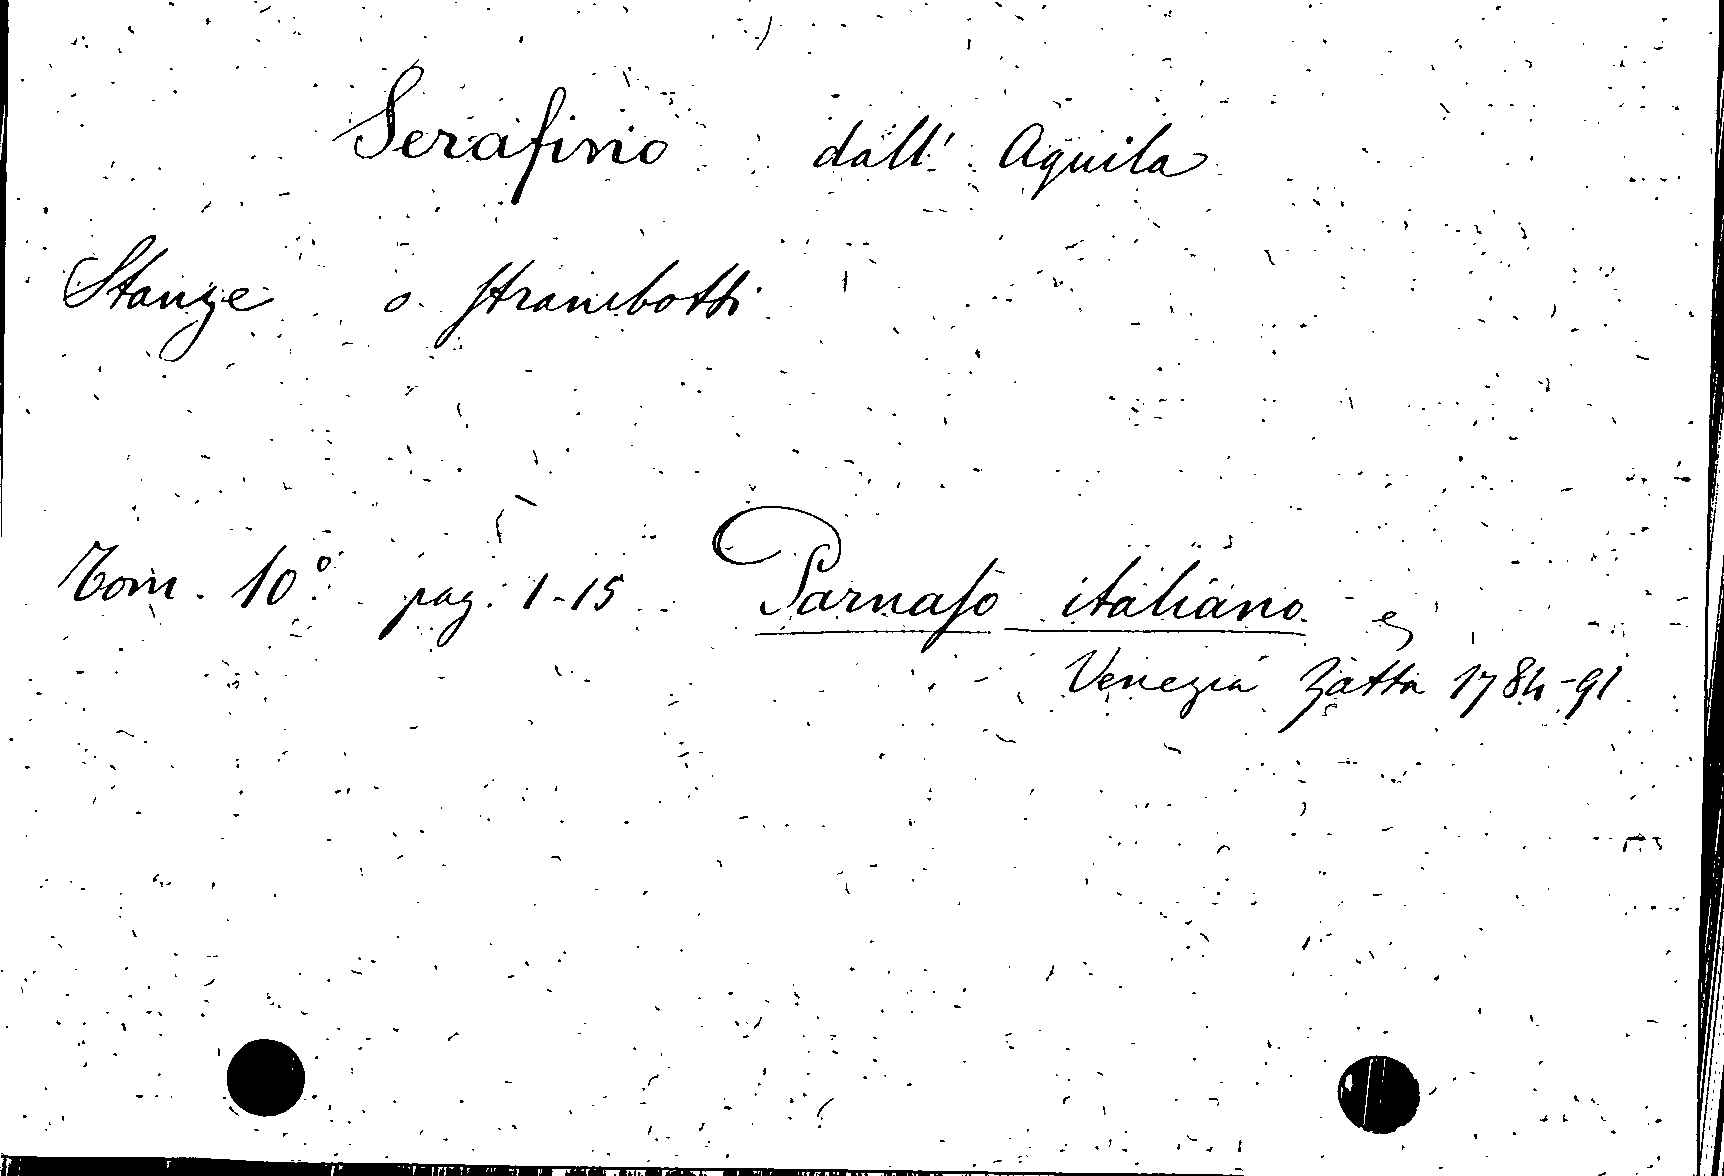 Serafino dall' Aquila
Stanze o strambotti
Tom. 10º pag. 1-15 Parnaso italiano
Venezia Zatta 1784-91